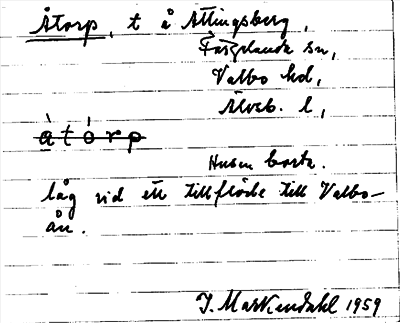 Åtorp, t å Ättingsberg,
Färgelanda sn,
Valbo hd,
Älvsb. l,
àtórp
Husen borta.
låg vid ett tillflöde till Valbo-
ån.
J. Markendahl 1959